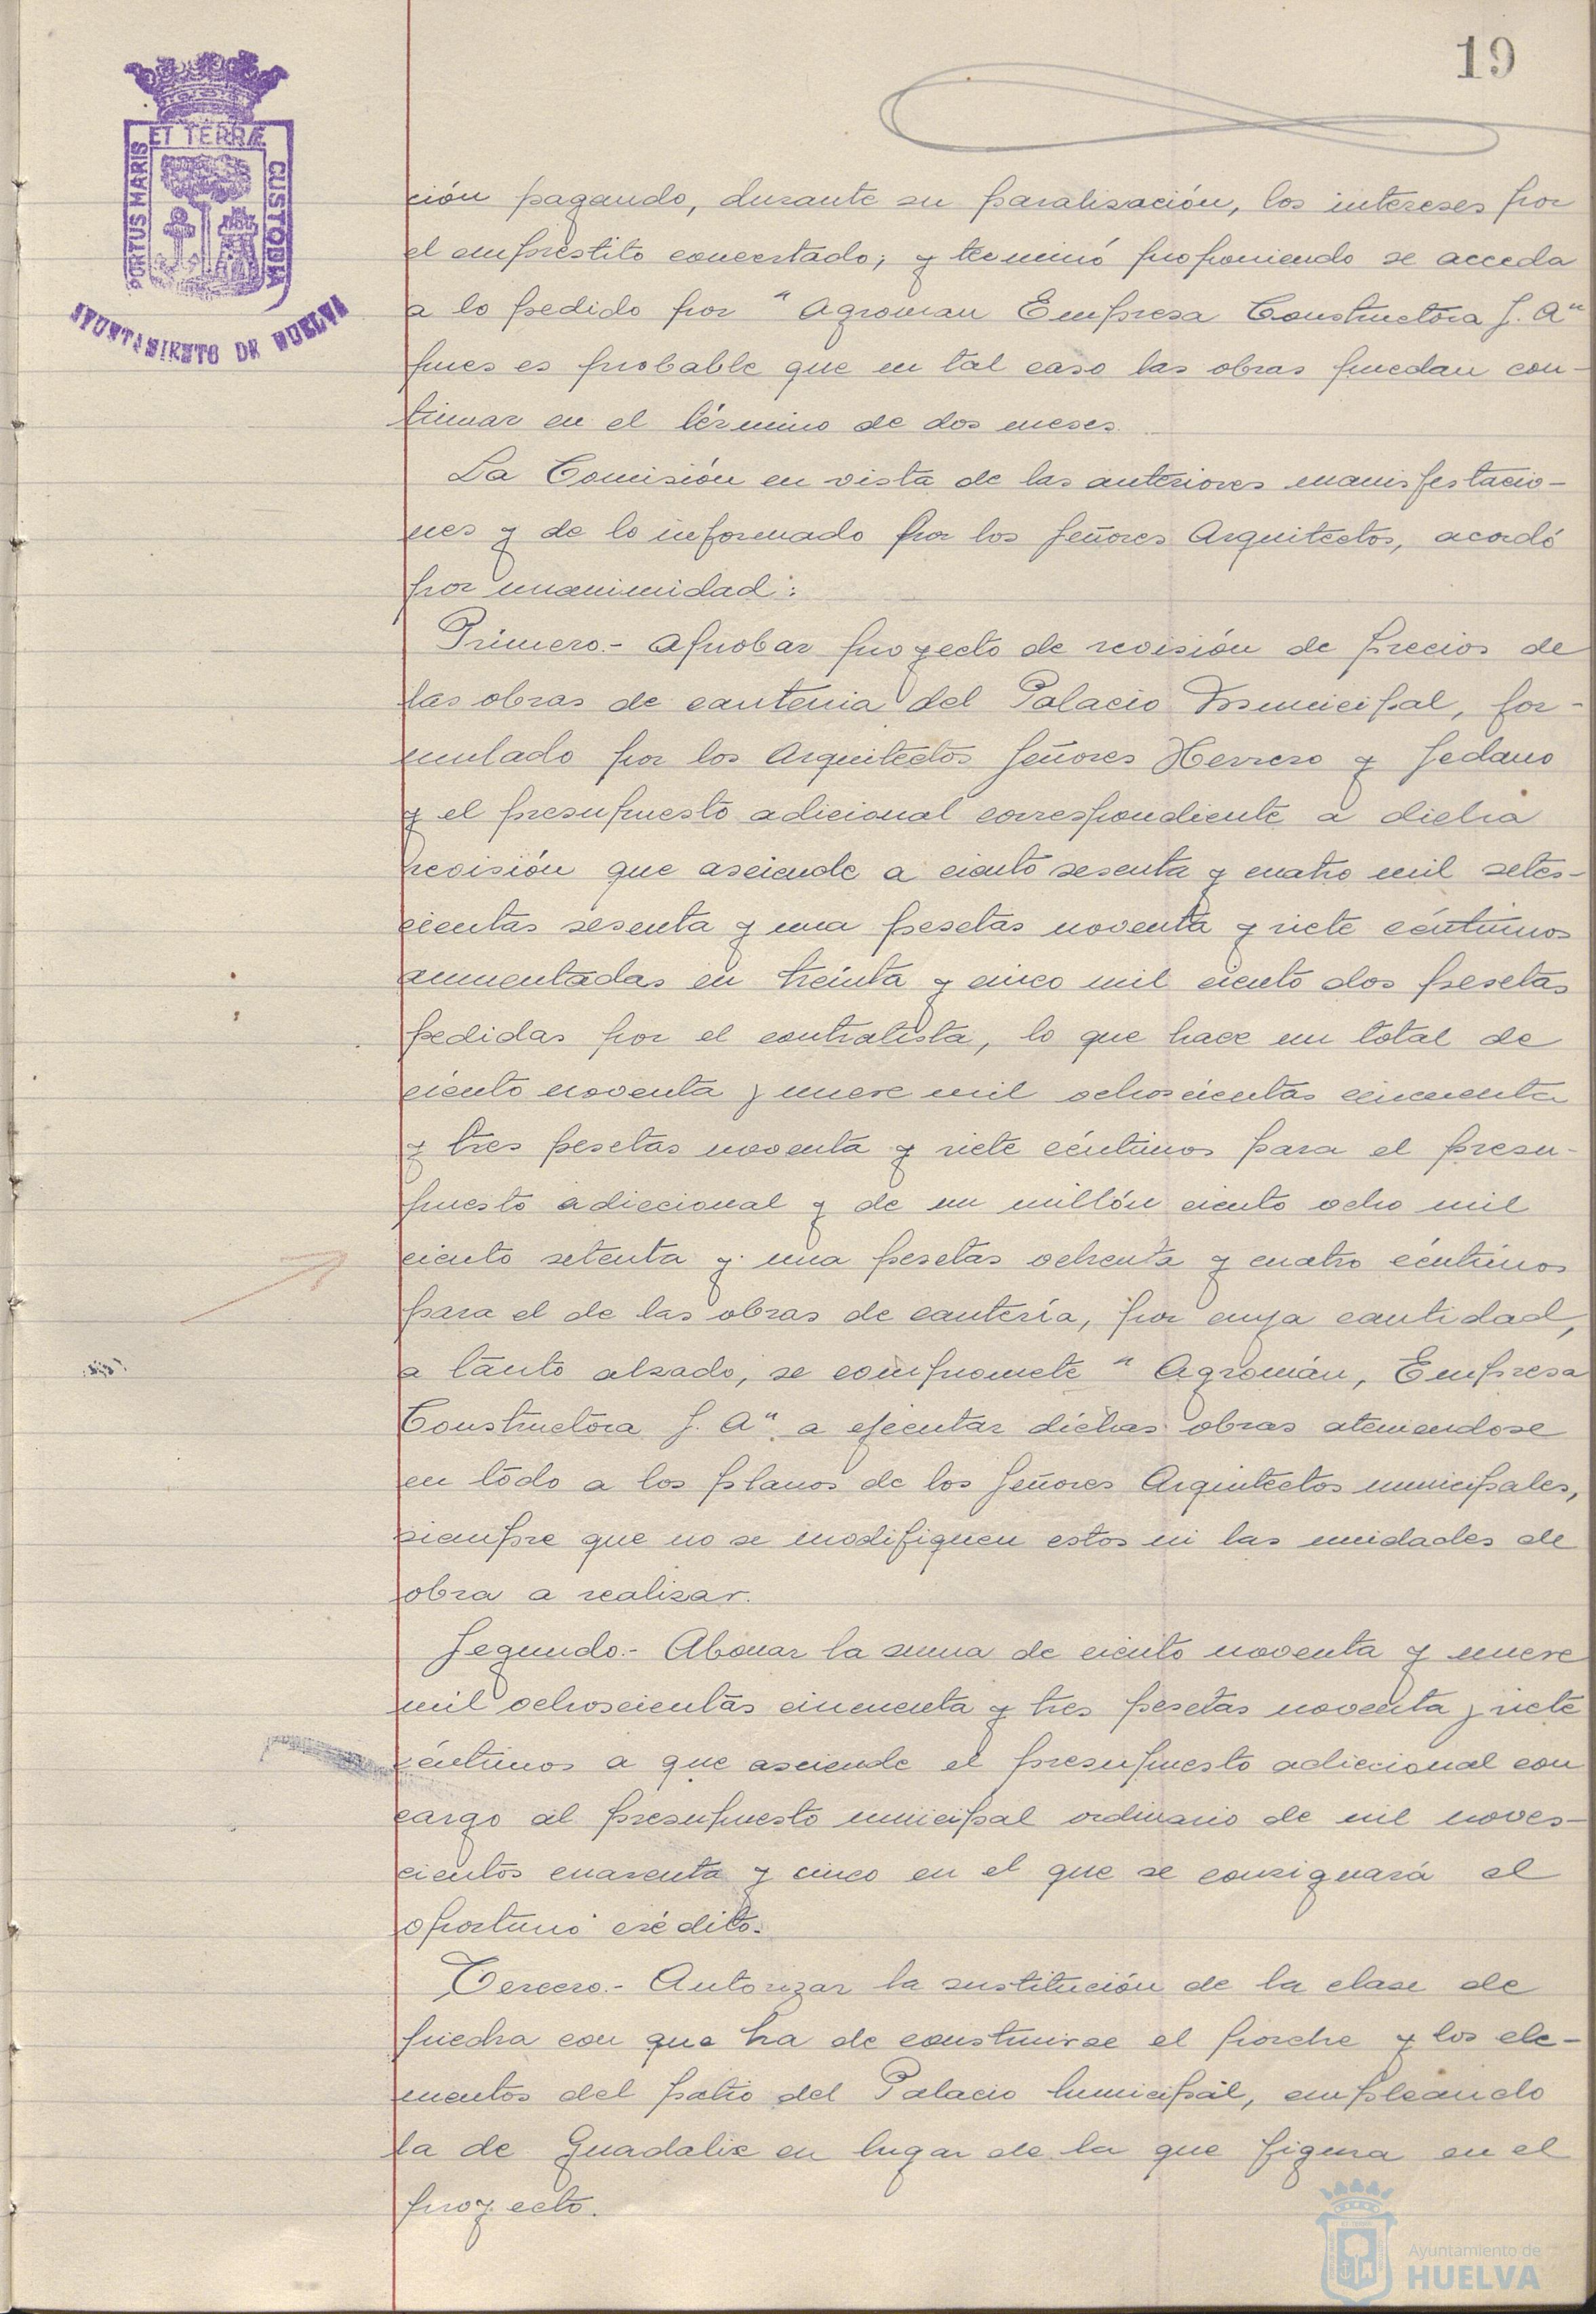 19
PORTUS MARIS ET TERRÆ CUSTODIA
AYUNTAMIENTO DE HUELVA
ción pagando, durante su paralización, los intereses por
el empréstito concertado; y terminó proponiendo se acceda
a lo pedido por "Agroman Empresa Constructora S. A"
pues es probable que en tal caso las obras puedan con-
tinuar en el término de dos meses.
La Comisión en vista de las anteriores manisfestacio-
nes y de lo informado por los Señores Arquitectos, acordó
por unanimidad:
Primero.- Aprobar proyecto de revisión de precios de
las obras de cantería del Palacio Municipal, for-
mulado por los Arquitectos Señores Herrero y Sedano
y el presupuesto adicional correspondiente a dicha
revisión que asciende a ciento sesenta y cuatro mil sete-
cientas sesenta y una pesetas noventa y siete céntimos
aumentadas en treinta y cinco mil ciento dos pesetas
pedidas por el contratista, lo que hace un total de
ciento noventa y nueve mil ochoscientas cincuenta
y tres pesetas noventa y siete céntimos para el presu-
puesto adiccional y de un millón ciento ocho mil
ciento setenta y una pesetas ochenta y cuatro céntimos
para el de las obras de cantería, por cuya cantidad,
a tanto alzado, se compromete "Agromán, Empresa
Constructora S. A". a ejecutar dichas obras ateniendose
en todo a los planos de los Señores Arquitectos municipales,
siempre que no se modifiquen estos ni las unidades de
obra a realizar.
Segundo.- Abonar la suma de ciento noventa y nueve
mil ochoscientas cincuenta y tres pesetas noventa y siete
céntimos a que asciende el presupuesto adiccional con
cargo al presupuesto municipal ordinario de mil noves-
cientos cuarenta y cinco en el que se consignará el
oportuno crédito.
Tercero.- Autorizar la sustitución de la clase de
piedra con que ha de construirse el porche y los ele-
mentos del patio del Palacio Municipal, empleando
la de Guadalix en lugar de la que figura en el
proyecto.
Ayuntamiento de
HUELVA